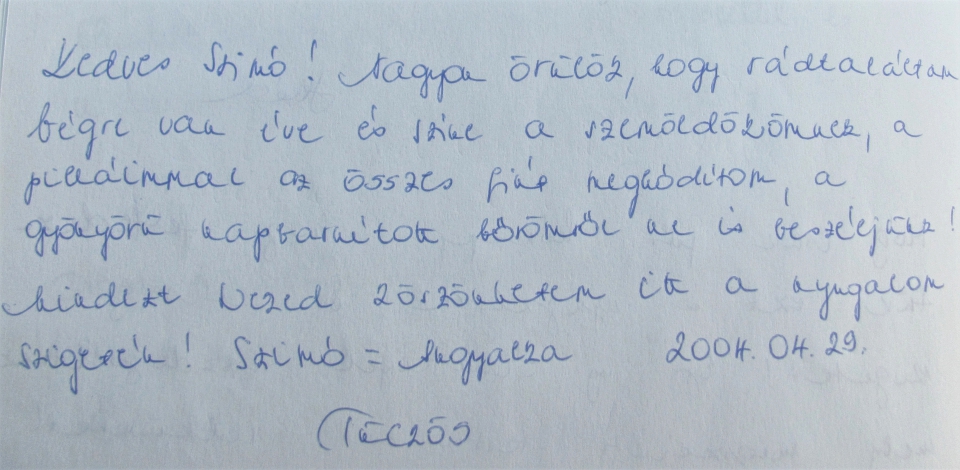 Kedves Szimó! Nagyon örülök, hogy rádtaláltam
végre van íve és színe a szemöldökömnek, a
pilláimmal az összes fiút meghódítom, a
gyönyörű napbarnított bőrömről ne is beszéljünk!
Mindezt Neked köszönhetem itt a nyugalom
szigetén! Szimó = Angyalka 2004. 04. 29.